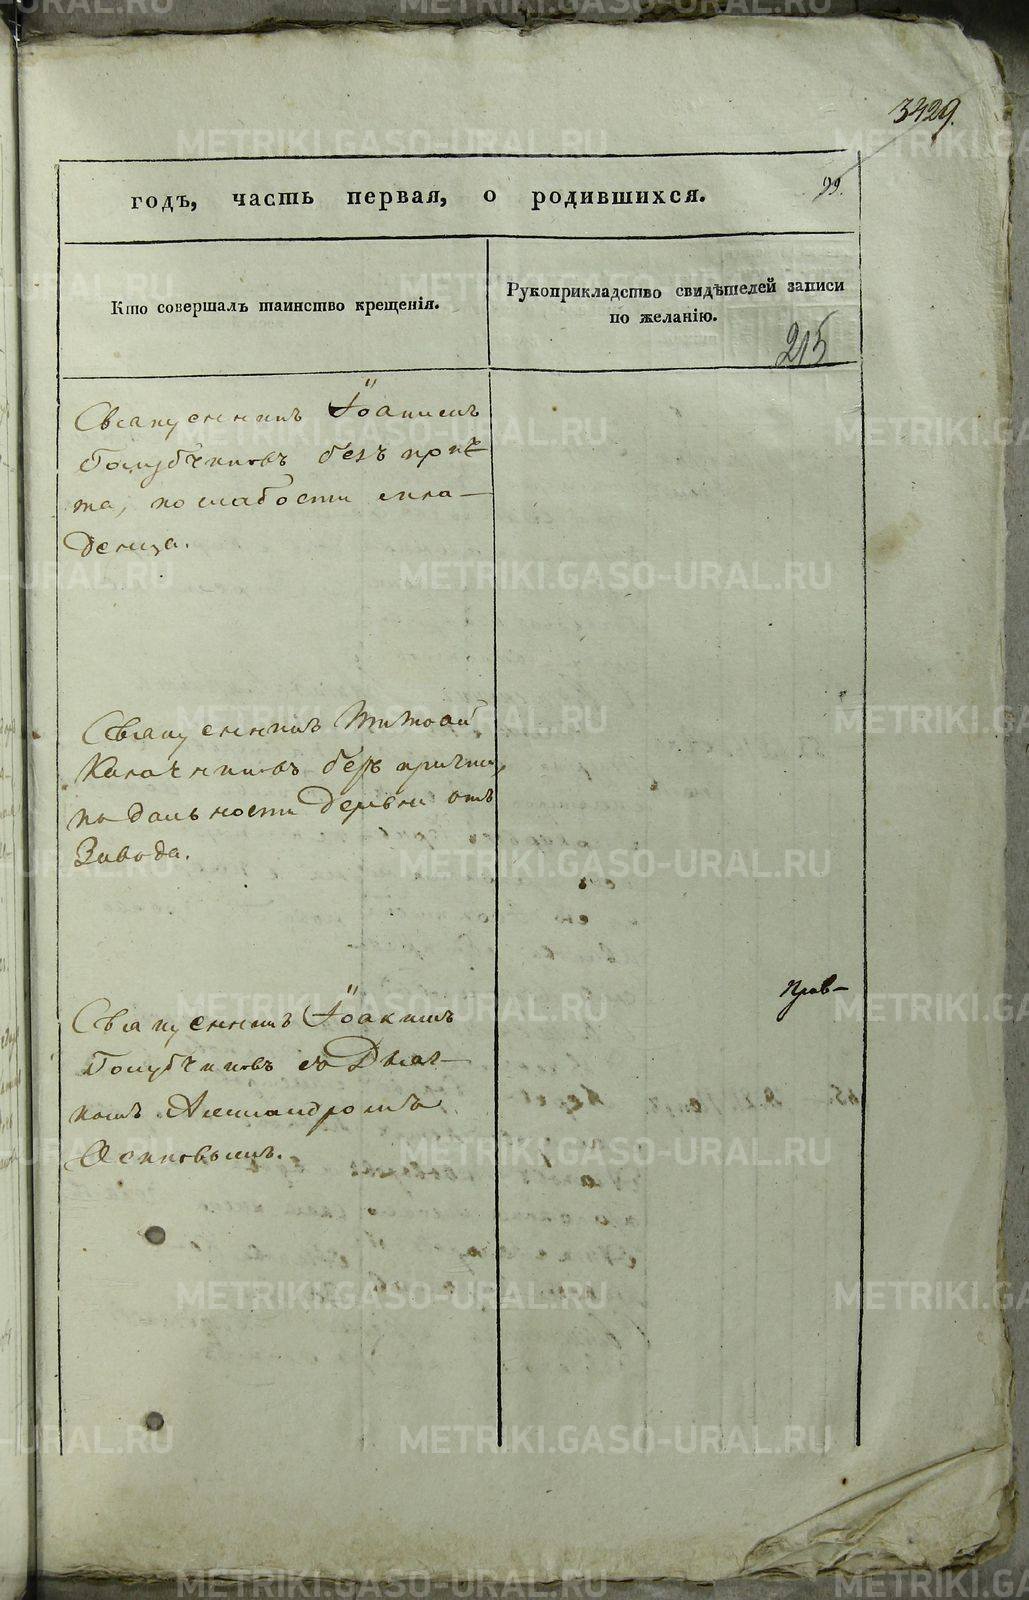 3429.
99.
годъ, часть первая, о родившихся.
Кто совершалъ таинство крещенія.
Рукоприкладство свидѣтелей записи
по желанію.
215
Священникъ Іоакимъ
Голубчиковъ безъ прич-
та, по слабости мла-
денца.
Священникъ
Калачниковъ безъ причта,
по дальности деревни отъ
Завода.
Священникъ Іоакимъ
Голубчиковъ съ Дьяч-
комъ Александромъ
Осиповымъ.
METRIKI.GASO-URAL.RU